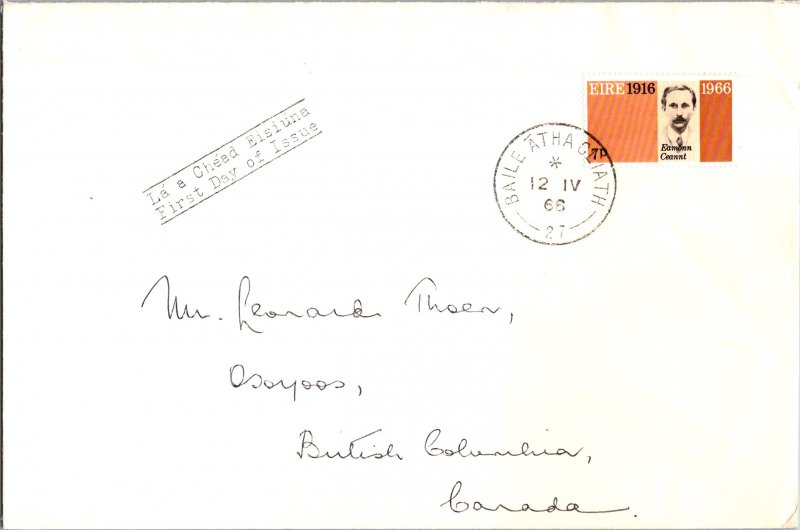 EIRE 1916 1966
7p
Eamonn
Ceannt
Lá a Chéad Eisiúna
First Day of Issue
BAILE ÁTHA CLIATH
12 IV
66
27
Mr. Leonard Thoen,
Osoyoos,
British Columbia,
Canada.